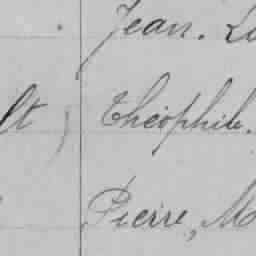 Jean. Lo
lt Théophile.
Pierre, Ma